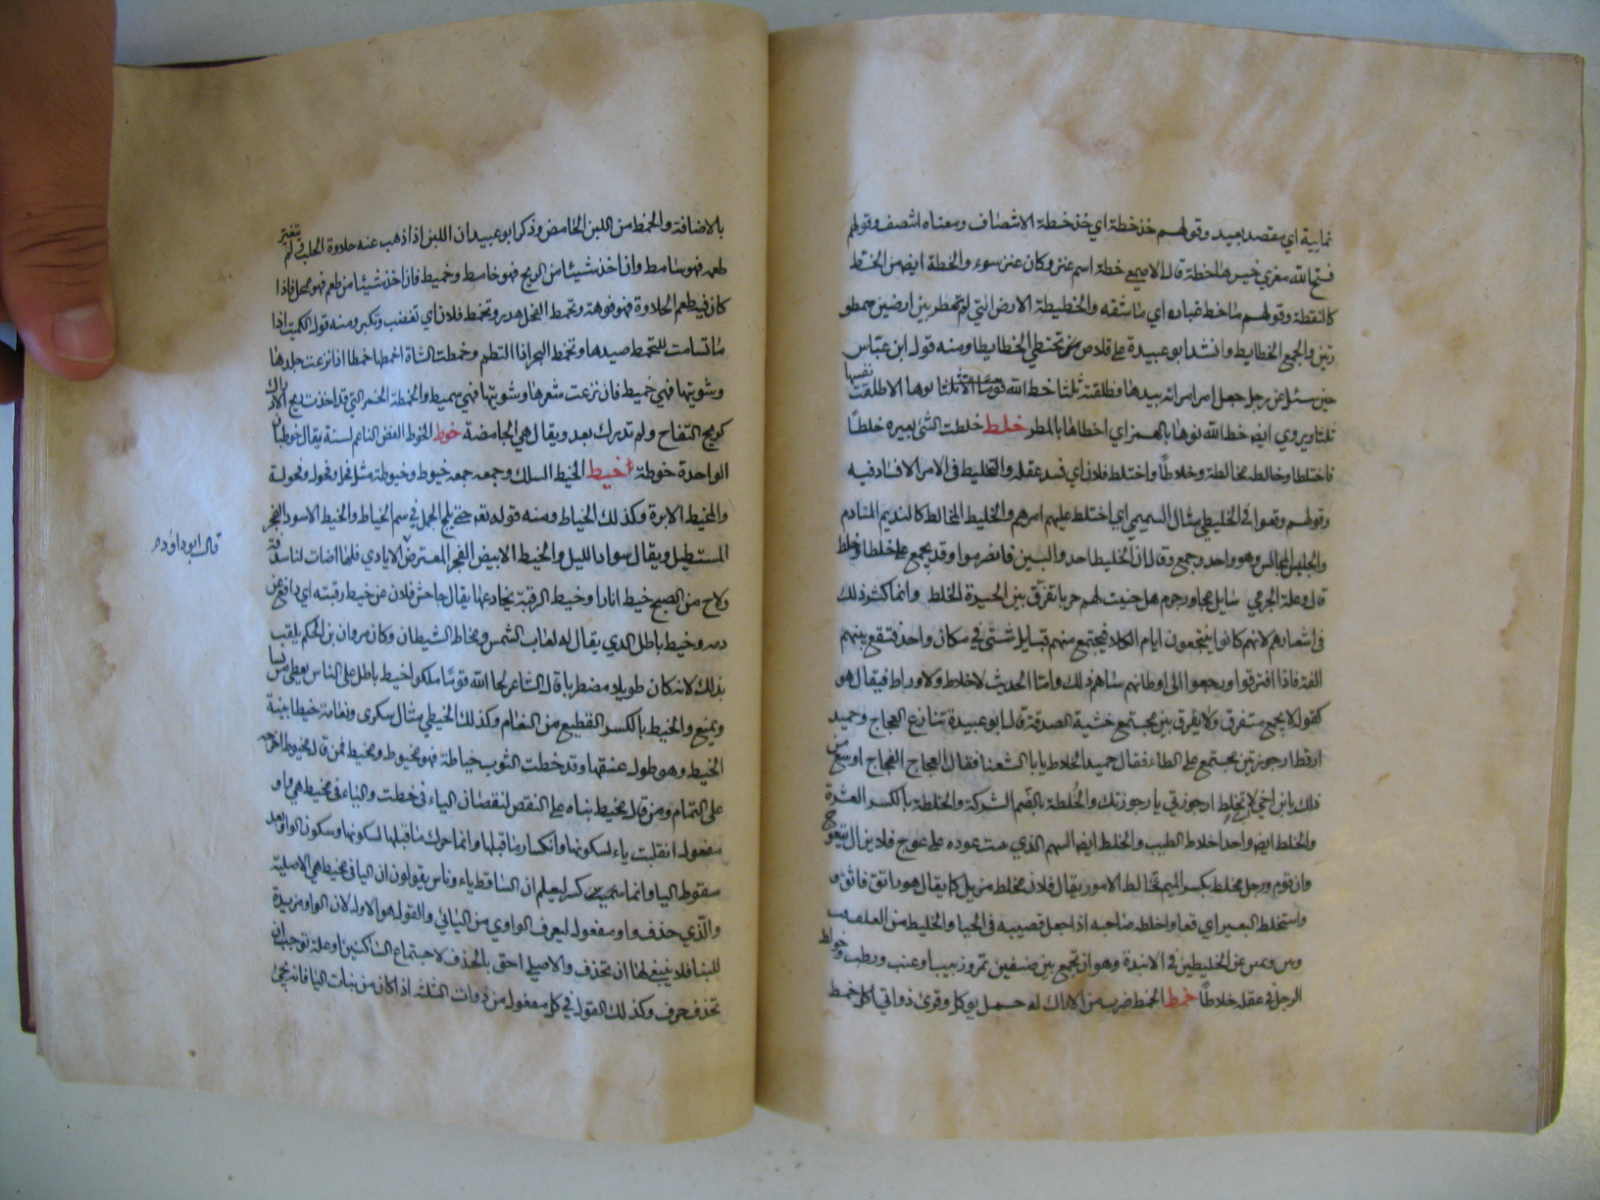 نماية اي مقصد بعيد وقولهم خذ خطة اي خذ خطة الانتصاف ومعناه انتصف وقولهم
قبح الله معزي خيرها خطة قال الاصمعي خطة اسم عنز وكان عنز سوء والخطة ايضا من الخط
كالنقطة وقولهم ما خط غباره اي ما شقه والخطيطة الارض التي لم تمطر بين ارضين ممطو
رتين والجمع الخطايط وانشد ابو عبيدة على قلاص تختطي الخطايطا ومنه قول ابن عباس
حين سئل عن رجل جعل امر امراته بيدها فطلقته ثلثا خط الله نوءها الا طلقت نفسها
ثلثا ويروي ايضا خطا الله نوءها بالهمز اي اخطاها المطر خلط خلطت الشئ بغيره خلطا
فاختلطا وخالطه مخالطة وخلاطا واختلط فلان اي فسد عقله والتخليط في الامر الافساد فيه
وقولهم وقعوا في الخليطى مثال السميهى اي اختلط عليهم امرهم والخليط المخالط كالنديم المنادم
والجليس المجالس وهو واحد وجمع وقال ان الخليط اجد والبين فانصرموا وقد يجمع على خلطا وخلط
قال وعلة الجرمي سايل مجاور جرم هل جنيت لهم حربا تفرق بين الجيرة الخلط وانما كثر ذلك
في اشعارهم لانهم كانوا ينتجعون ايام الكلا فيجتمع منهم قبايل شتى في مكان واحد فتقع بينهم
الفة فاذا افترقوا ورجعوا الى اوطانهم ساهم ذلك واما الحديث لا خلاط ولا وراط فيقال هو
كقوله لا يجمع متفرق ولا يفرق بين مجتمع خشية الصدقة قال ابو عبيدة تنازع العجاج وحميد
ارقط ارجوزتين مجتمع على الطاء فقال حميد الخلاط يا ابا الشعثا فقال العجاج الفجاج اوسع من
ذلك يا بن اخي لا تخلط ارجوزتي بارجوزتك والخلطة بالضم الشركة والخلطة بالكسر العشرة
والخلط ايضا واحد اخلاط الطيب والخلط ايضا السهم الذي ينبت عوده على عوج فلا يزال يتعوج
وان قوم ورجل مخلط بكسر الميم يخالط الامور يقال فلان مخلط مزيل كما يقال هو راتق فاتق
واستخلط البعير اي قعا واخلطه صاحبه اذا جعل قضيبه في الحيا والخليط من العلف
ونهى عن الخليطين في الانبذة وهو ان تجمع بين صنفين تمر وزبيب او عنب ورطب وخولط
الرجل في عقله خلاطا خمط الخمط ضرب من الاراك له حمل يوكل وقرئ ذواتي اكل خمط
بالاضافة والخمط من اللبن الحامض وذكر ابو عبيد ان اللبن اذا ذهب عنه حلاوة الحلب ولم يتغير
طعمه فهو سامط وان اخذ شيئا من الريح فهو خامط وخميط فان اخذ شيئا من طعم فهو ممحل فاذا
كان فيه طعم الحلاوة فهو قوهة وتخمط الفحل هدر وتخمط فلان اي تغضب وتكبر ومنه قول الكميت اذا
ما تسامت للتخمط صيدها وتخمط البحر اذا التطم وخمطت الشاة اخمطها خمطا اذا نزعت جلدها
وشويتها فهي خميط فان نزعت شعرها وشويتها فهي سميط والخمطة الخمر التي قد اخذت ريح الادراك
كريح التفاح ولم تدرك بعد ويقال هي الحامضة خوط الخوط الغصن الناعم لسنة يقال خوط بان
الواحدة خوطة خيط الخيط السلك وجمعه خيوط وخيوطة مثل فحل وفحول وفحولة
والمخيط الابرة وكذلك الخياط ومنه قوله تع حتى يلج الجمل في سم الخياط والخيط الاسود الفجر
المستطيل ويقال سواد الليل والخيط الابيض الفجر المعترض الايادي فلما اضات لنا سدفة
ولاح من الصبح خيط انارا وخيط الرقبة نخاعها يقال جاحش فلان عن خيط رقبته اي دافع عن
دمه وخيط باطل الذي يقال له لعاب الشمس ومخاط الشيطان وكان مروان بن الحكم يلقب
بذلك لانه كان طويلا مضطربا قال الشاعر لحا الله قوما ملكوا خيط باطل على الناس يعطي من يشا
ويمنع والخيط بالكسر القطيع من النعام وكذلك الخيطى مثال سكرى ونعامة خيطا بينة
الخيط وهو طول عنقها وقد خطت الثوب خياطة فهو مخيوط ومخيط فمن قال مخيوط اخرجه
على التمام ومن قال مخيط بناه على النقص لنقصان الياء في خطت والياء في مخيط هي واو
مفعول انقلبت ياء لسكونها وانكسار ما قبلها وانما حرك ما قبلها لسكونها وسكون الواو بعد
سقوط اليا وانما كسر ليعلم ان الساقط ياء وناس يقولون ان اليا في مخيط هي الاصلية
والذي حذف واو مفعول ليعرف الواوي من اليائي والقول هو الاول لان الواو مزيدة
للبنا فلا ينبغي لها ان تحذف والاصلي احق بالحذف لاجتماع الساكنين او علة توجب ان
تحذف حرف وكذلك القول في كل مفعول من ذوات الثلثة اذا كان من بنات اليا فانه يجئ
قال ابو داود